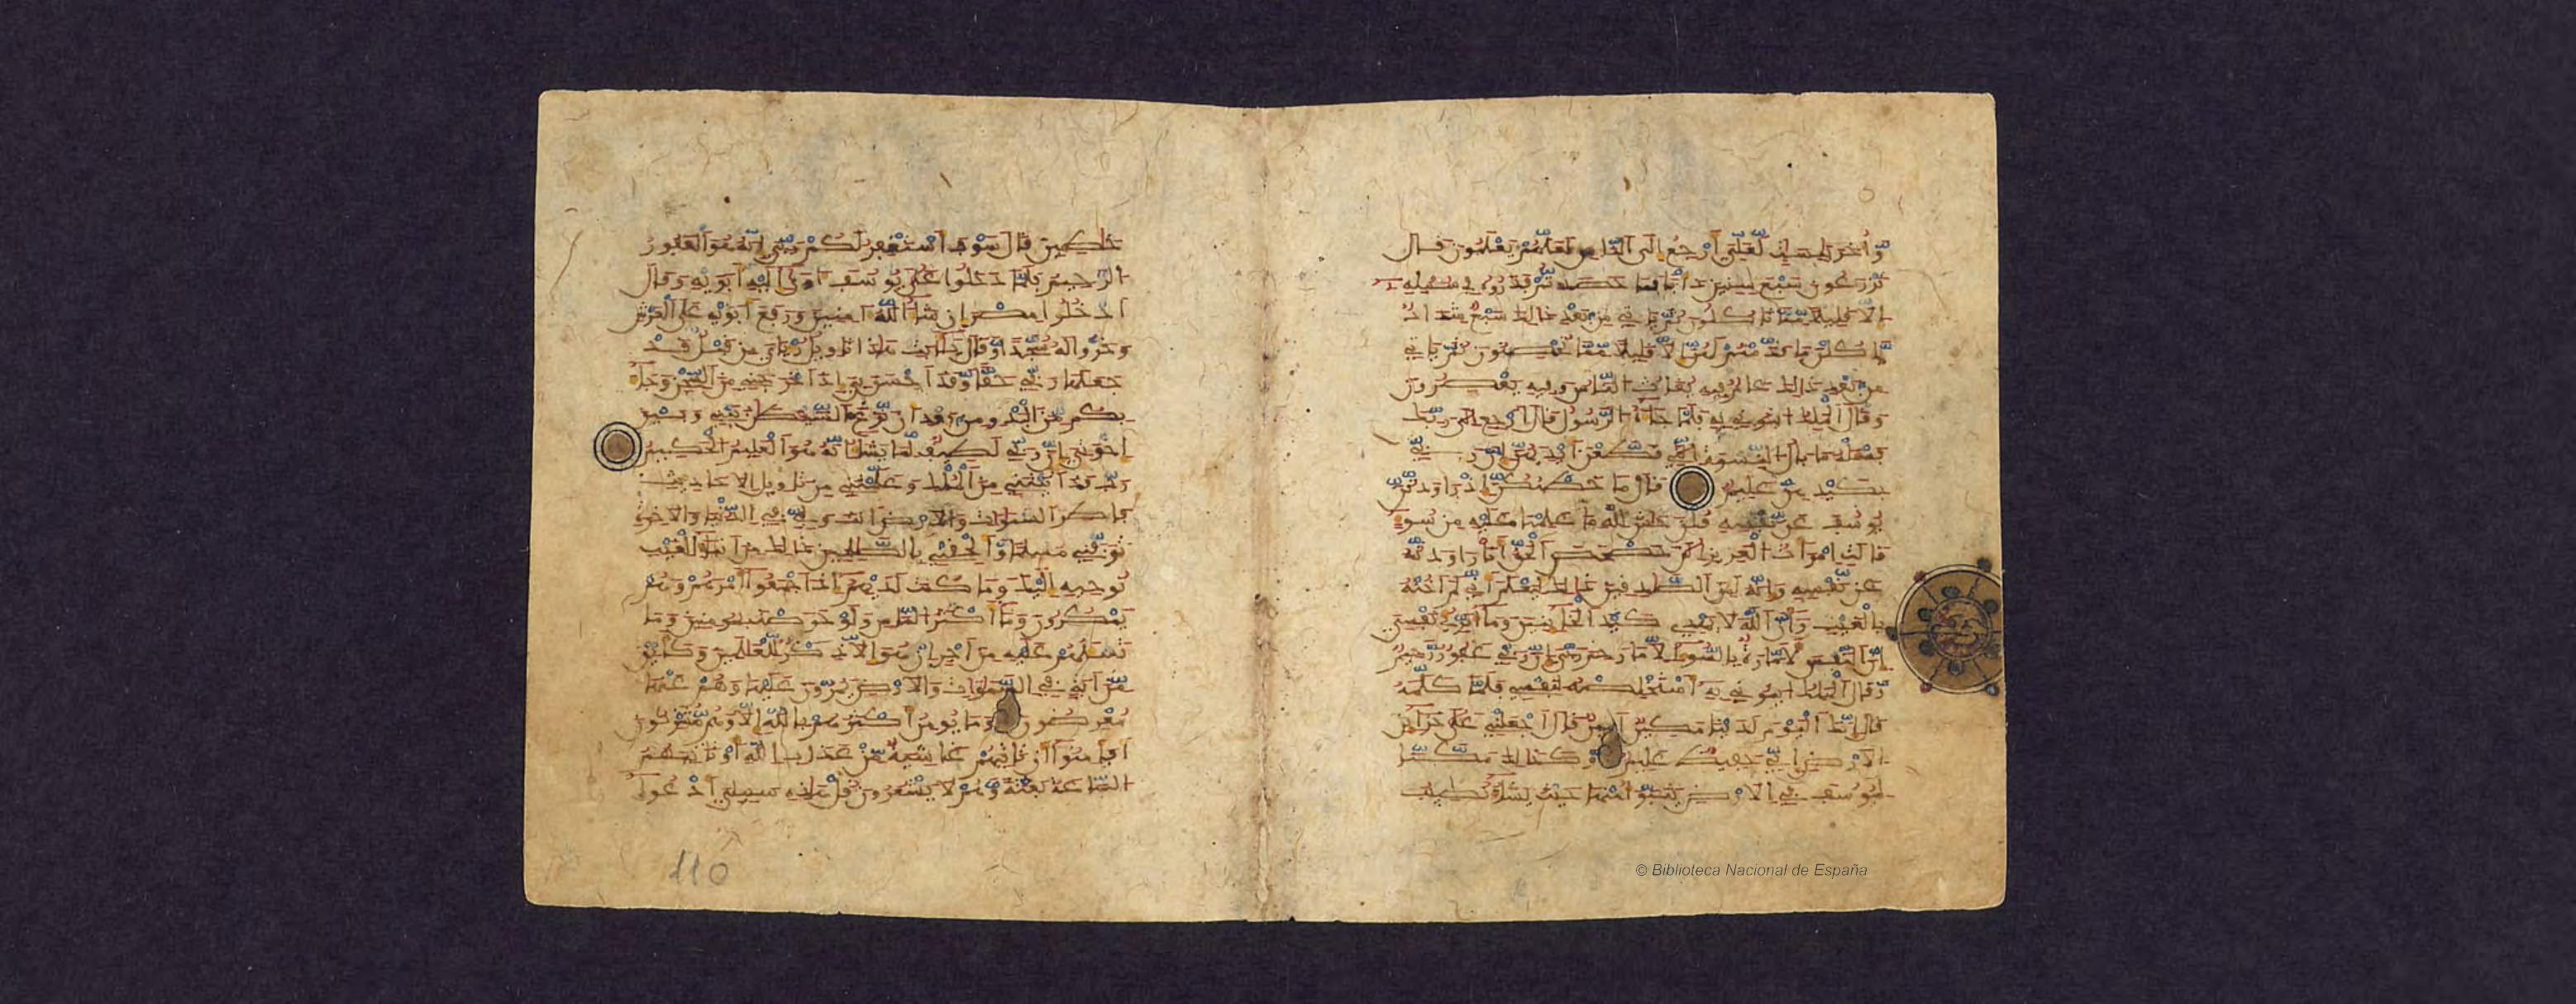 وأخر يابسات لعلي أرجع إلى الناس لعلهم يعلمون قال
تزرعون سبع سنين دأبا فما حصدتم فذروه في سنبله
إلا قليلا مما تأكلون ثم يأتي من بعد ذلك سبع شداد
يأكلن ما قدمتم لهن إلا قليلا مما تحصنون ثم يأتي
من بعد ذلك عام فيه يغاث الناس وفيه يعصرون
وقال الملك ائتوني به فلما جاءه الرسول قال ارجع إلى ربك
فسئله ما بال النسوة التي قطعن أيديهن إن ربي
بكيدهن عليم قال ما خطبكن إذ راودتن
يوسف عن نفسه قلن حش لله ما علمنا عليه من سوء
قالت امرأت العزيز الن حصحص الحق أنا راودته
عن نفسه وإنه لمن الصدقين ذلك ليعلم أني لم أخنه
بالغيب وأن الله لا يهدي كيد الخائنين وما أبرئ نفسي
إن النفس لأمارة بالسوء إلا ما رحم ربي إن ربي غفور رحيم
وقال الملك ائتوني به أستخلصه لنفسي فلما كلمه
قال إنك اليوم لدينا مكين أمين قال اجعلني على خزائن
الأرض إني حفيظ عليم وكذلك مكنا
ليوسف في الأرض يتبوأ منها حيث يشاء نصيب
خطين قال سوف أستغفر لكم ربي إنه هو الغفور
الرحيم فلما دخلوا على يوسف آوى إليه أبويه وقال
ادخلوا مصر إن شاء الله آمنين ورفع أبويه على العرش
وخروا له سجدا وقال يا أبت هذا تأويل رؤياي من قبل قد
جعلها ربي حقا وقد أحسن بي إذ أخرجني من السجن وجاء
بكم من البدو من بعد أن نزغ الشيطن بيني وبين
إخوتي إن ربي لطيف لما يشاء إنه هو العليم الحكيم
رب قد آتيتني من الملك وعلمتني من تأويل الأحاديث
فاطر السموات والأرض أنت وليي في الدنيا والآخرة
توفني مسلما وألحقني بالصلحين ذلك من أنباء الغيب
نوحيه إليك وما كنت لديهم إذ أجمعوا أمرهم وهم
يمكرون وما أكثر الناس ولو حرصت بمومنين وما
تسئلهم عليه من أجر إن هو إلا ذكر للعلمين وكأين
من آية في السموات والأرض يمرون عليها وهم عنها
معرضون وما يومن أكثرهم بالله إلا وهم مشركون
أفأمنوا أن تأتيهم غاشية من عذاب الله أو تأتيهم
الساعة بغتة وهم لا يشعرون قل هذه سبيلي أدعوا
110
© Biblioteca Nacional de España